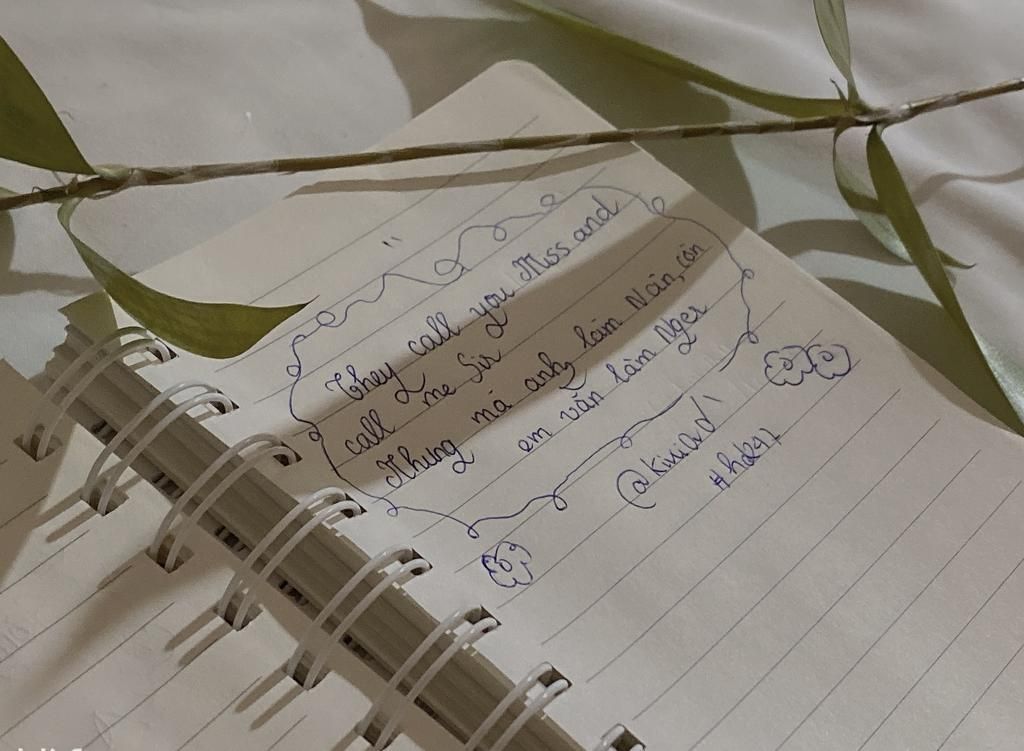 They call you Miss and
call me Sir
Nhưng mà anh làm Nắn, còn
em vẫn làm Nger
#hd241